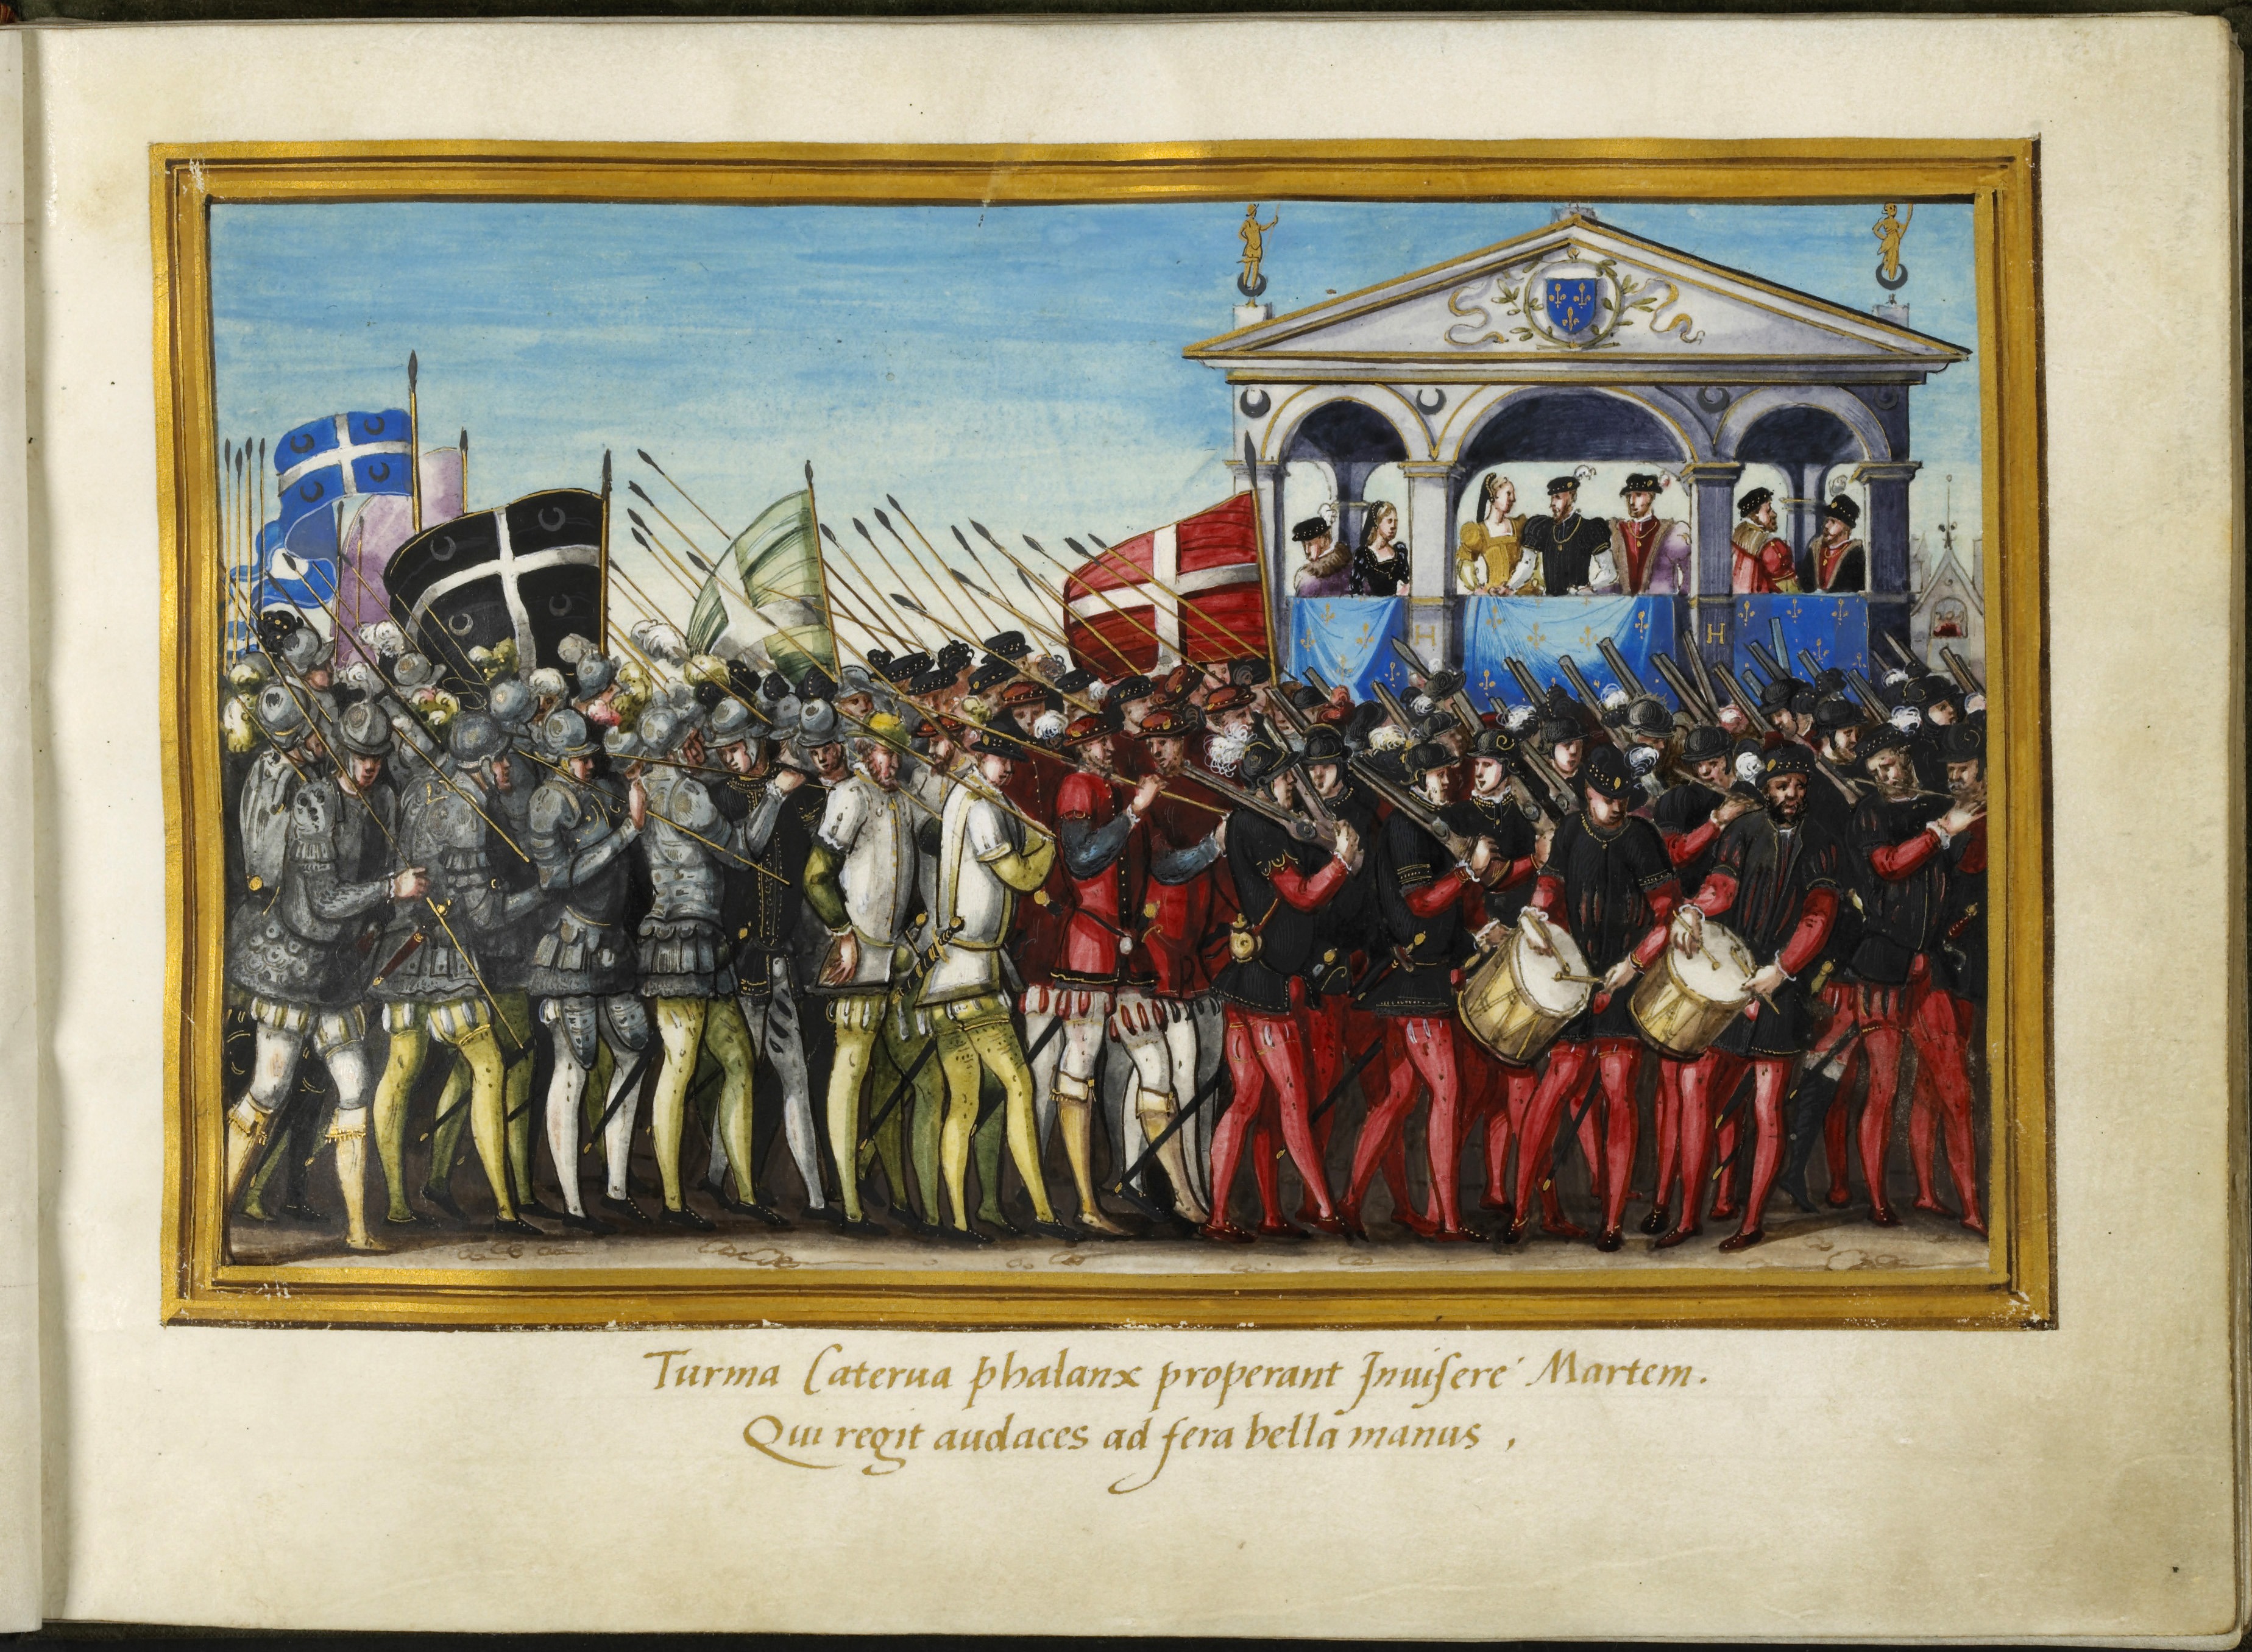 H H
Turma Caterua phalanx properant Jnuiſere Martem.
Qui regit audaces ad fera bella manus,